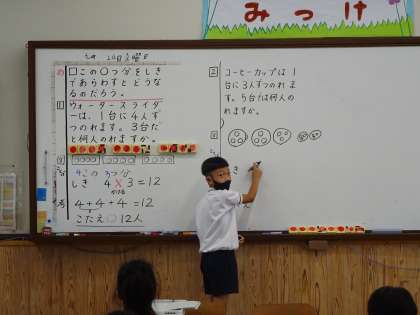 みっけ
□この○つ分をしき
であらわすとどうな
るのだろう。
1 ウォータースライダ
ーは、1台に4人ず
つのれます。3台だ
と何人のれますか。
4この 3つ分
しき 4×3=12
かける
4+4+4=12
こたえ 12人
2 コーヒーカップは 1
台に3人ずつのれま
す。5台では何人の
れますか。